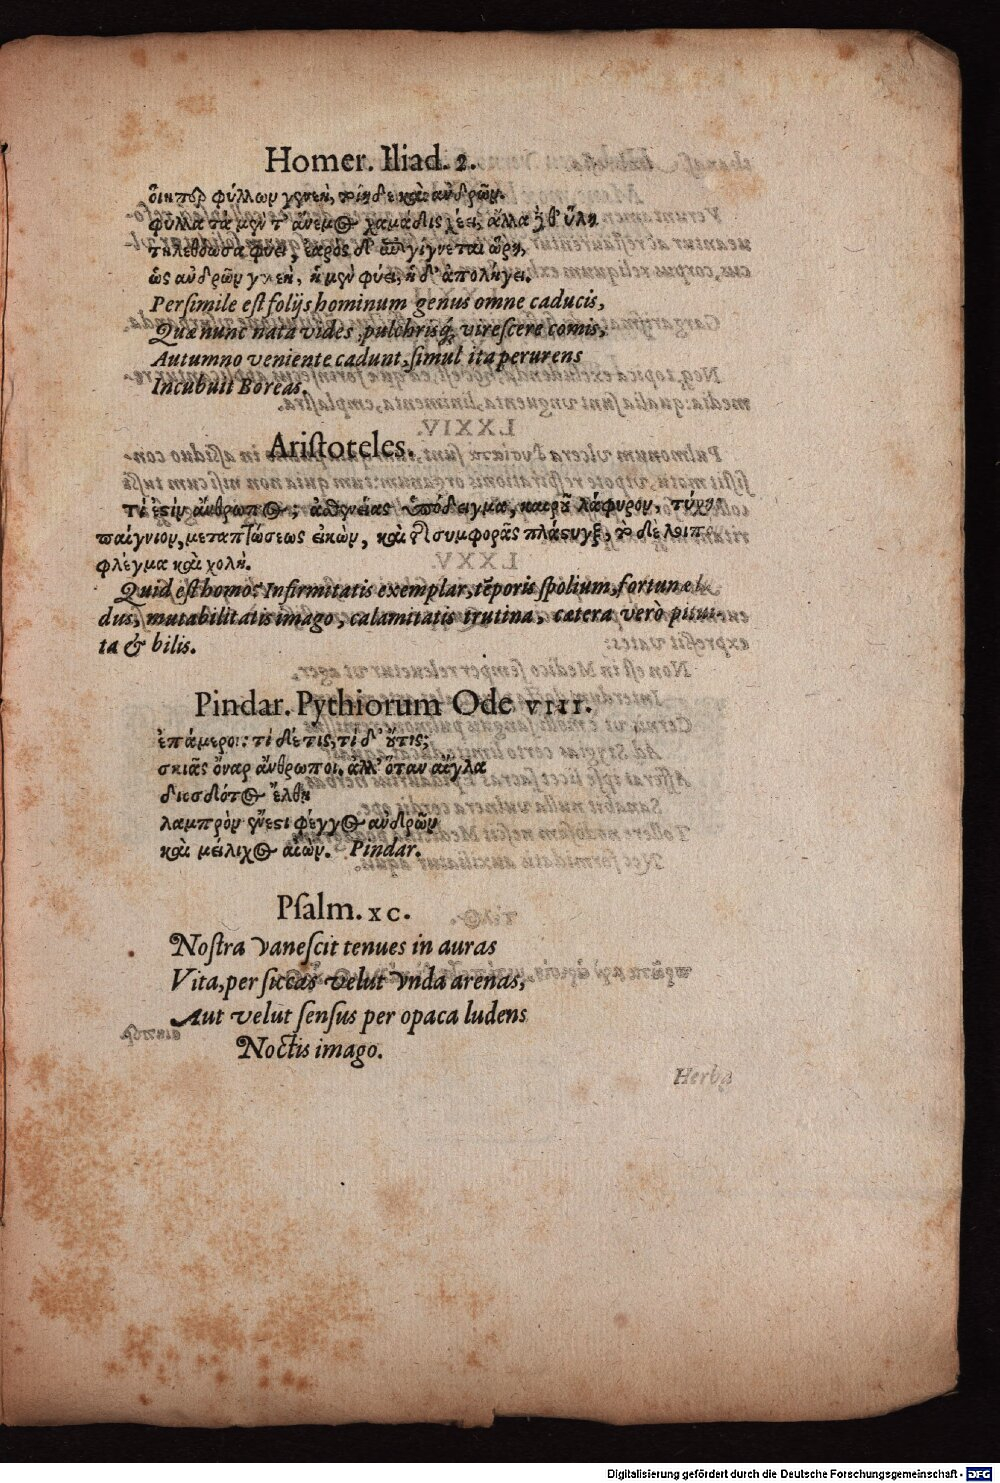 Homer. Iliad. 2.
ὅιηπερ φύλλων γενεὴ, τοίηδε καὶ ἀνδρῶν.
φύλλα τὰ μὲν τ' ἄνεμος χαμάδις χέει, ἄλλα δέ θ' ὕλη
τηλεθόωσα φύει, ἔαρος δ' ἐπιγίγνεται ὥρη,
ὣς ἀνδρῶν γενεὴ, ἡ μὲν φύει, ἡ δ' ἀπολήγει.
Persimile est folijs hominum genus omne caducis,
Quæ nunc nata vides, pulchrisq́; virescere comis,
Autumno veniente cadunt, simul ita perurens
Incubuit Boreas.
Aristoteles.
Τί ἐστὶν ἄνθρωπος; ἀσθενείας ὑπόδειγμα, καιροῦ λάφυρον, τύχης
παίγνιον, μεταπτώσεως εἰκὼν, καὶ συμφορᾶς πλάστιγξ, τὸ δὲ λοιπὸν
φλέγμα καὶ χολή.
Quid est homo? Infirmitatis exemplar, tēporis spolium, fortunæ
dus, mutabilitatis imago, calamitatis trutina, cætera verò pitui-
ta & bilis.
Pindar. Pythiorum Ode VIII.
ἐπάμεροι: τί δέ τις, τί δ' οὔτις;
σκιᾶς ὄναρ ἄνθρωποι. ἀλλ' ὅταν αἴγλα
διοσδότος ἔλθη
λαμπρὸν ἔνεστι φέγγος ἀνδρῶν
καὶ μείλιχος αἰών. Pindar.
Psalm. XC.
Nostra vanescit tenues in auras
Vita, per siccas velut vnda arenas,
Aut velut sensus per opaca ludens
Noctis imago.
Herba
Digitalisierung gefördert durch die Deutsche Forschungsgemeinschaft - DFG